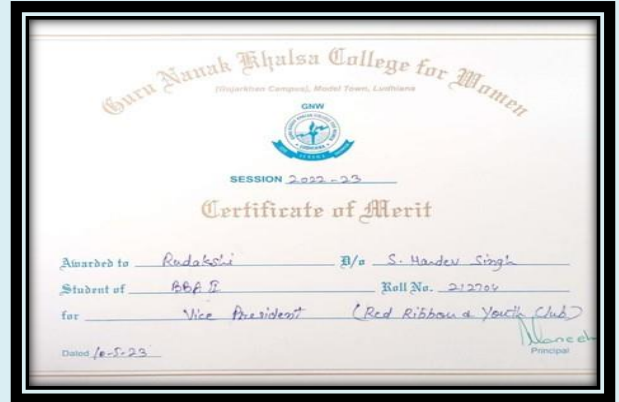 Guru Nanak Khalsa College for Women
(Gujarkhan Campus), Model Town, Ludhiana
GNW
SESSION 2022-23
Certificate of Merit
Awarded to Rudakshi D/o S. Handev Singh
Student of BBA II Roll No. 212704
for Vice President (Red Ribbon & Youth Club)
Dated 10-5-23
Principal